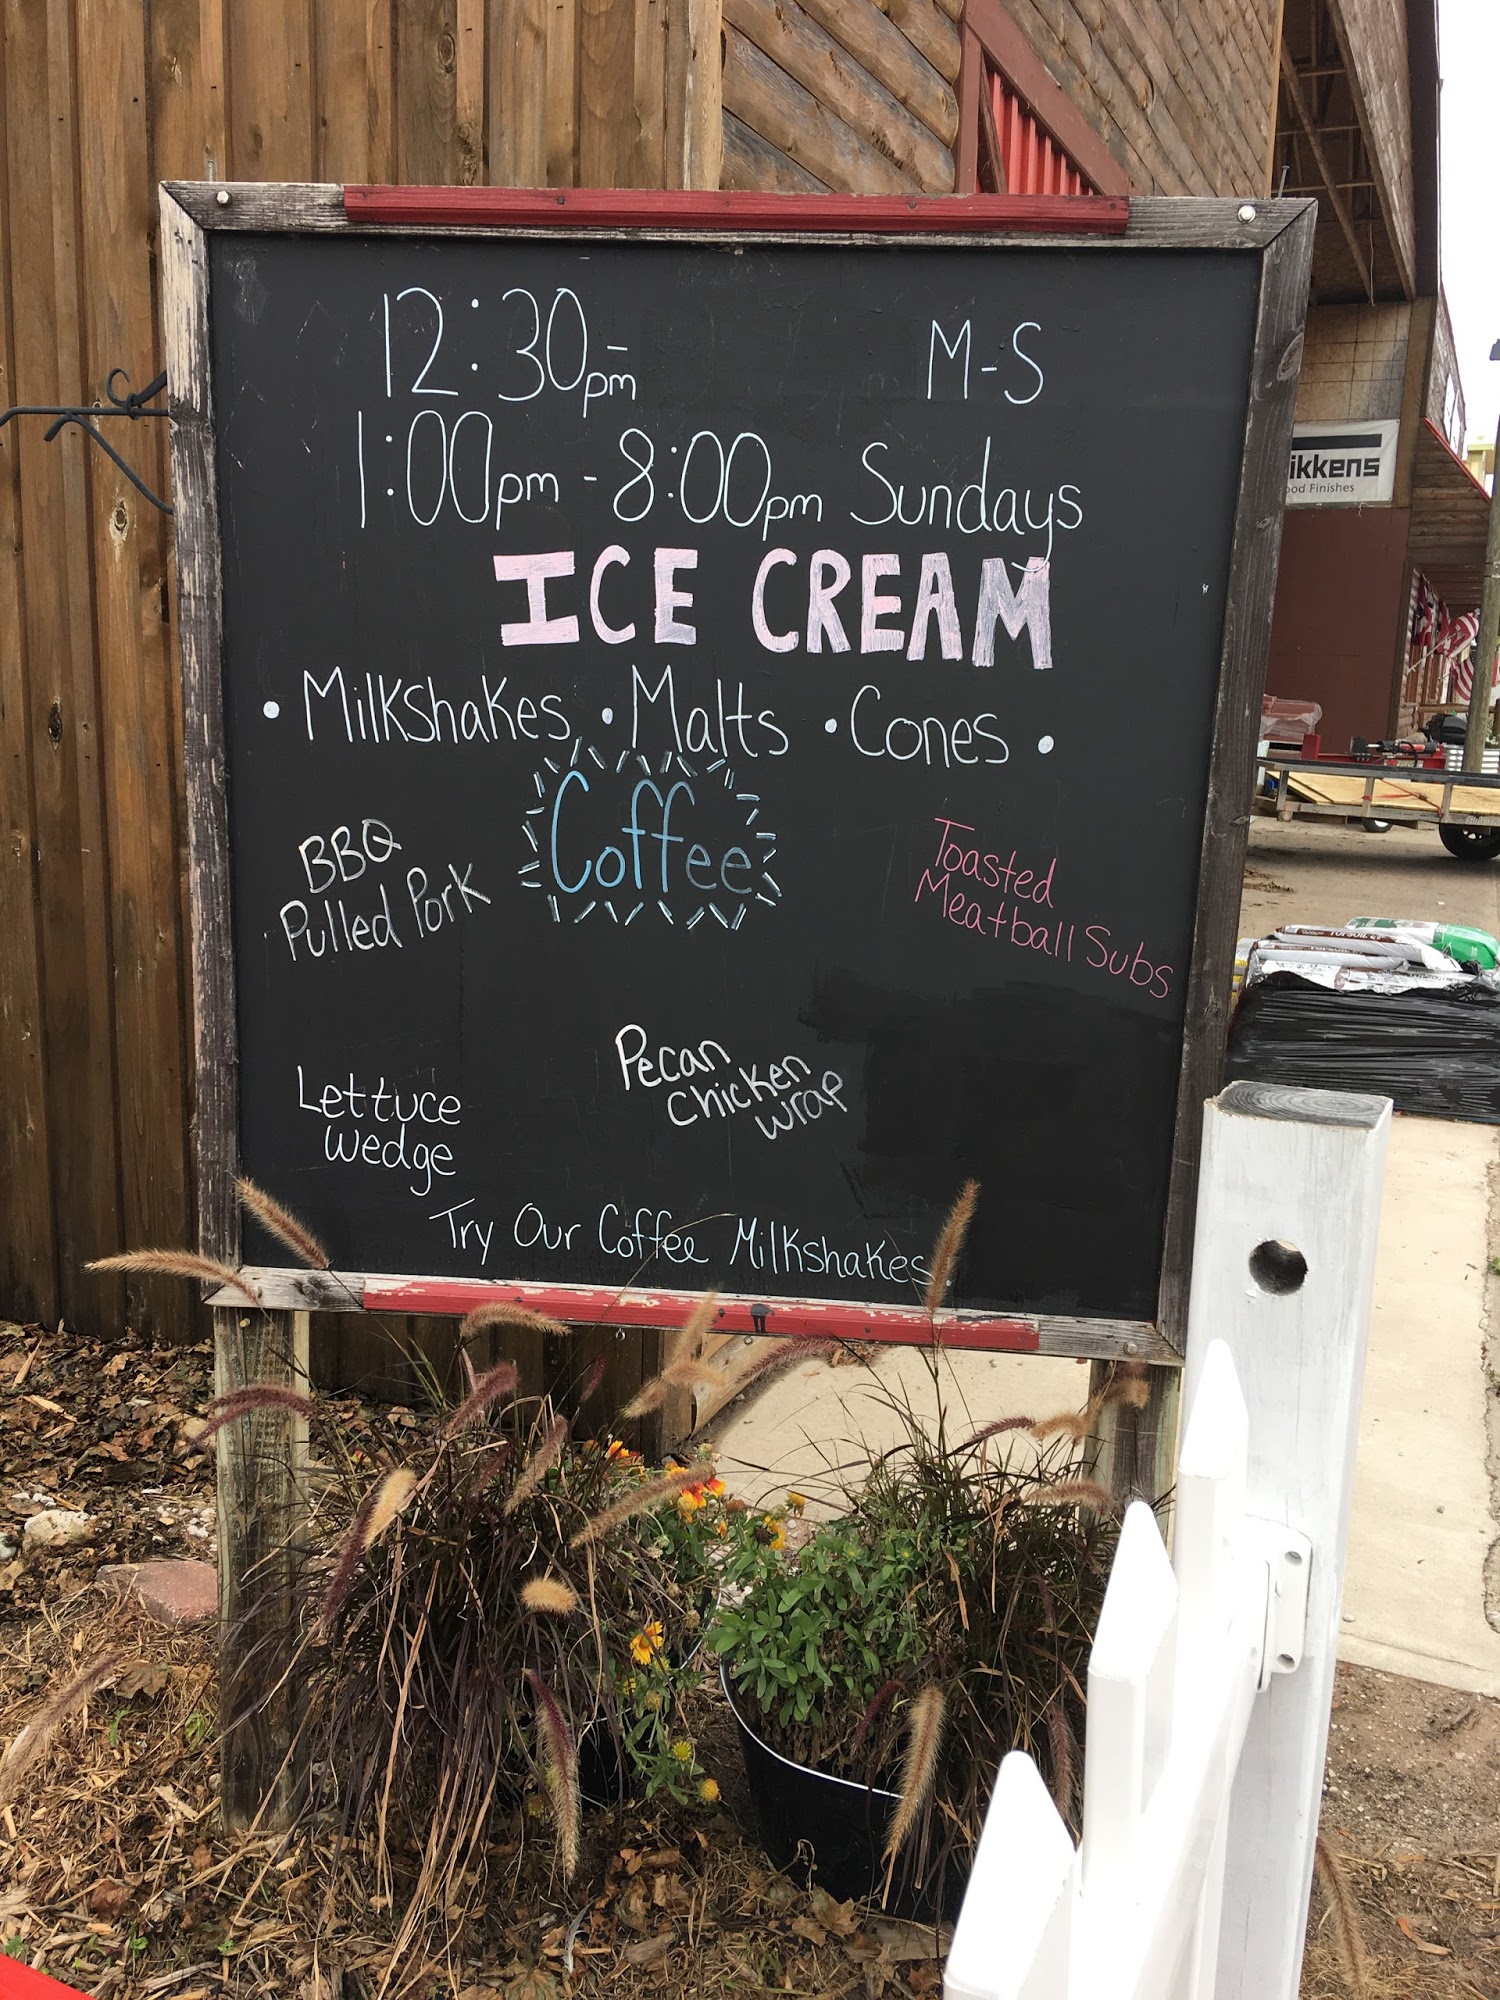 12:30pm- M-S
1:00pm - 8:00pm Sundays
ICE CREAM
• Milkshakes • Malts • Cones •
Coffee
BBQ
Pulled Pork
Toasted
Meatball Subs
Pecan
Chicken
wrap
Lettuce
Wedge
Try Our Coffee Milkshakes.
ikkens
ood Finishes
TOPSOIL